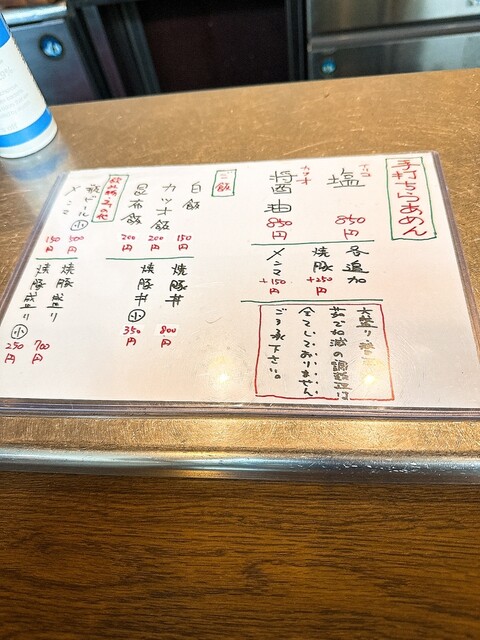 手打ちらあめん
塩 850円
カツオ
醤油 850円
各追加
焼豚 +250円
メンマ +150円
大盛り・
の調整は
全てしておりません
ご了承下さい。
ご飯
白飯 150円
カツオ飯 200円
昆布飯 200円
焼豚丼 800円
焼豚丼 小 350円
瓶ビール 小 500円
メンマ 150円
焼豚盛り 700円
焼豚盛り 小 250円